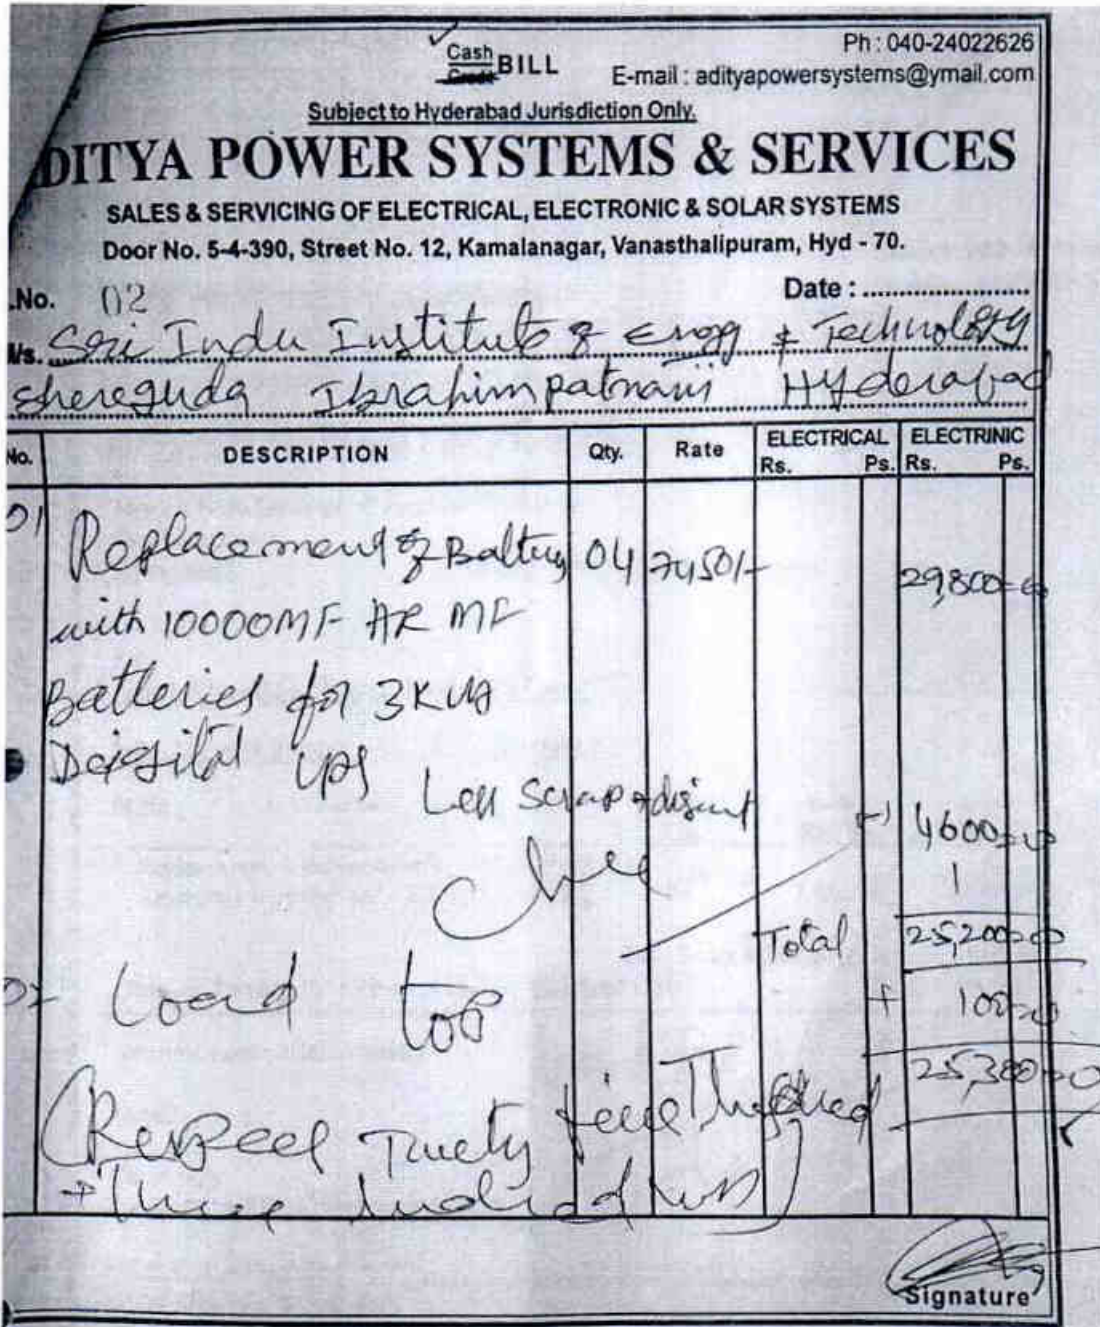 Cash
Credit BILL
Ph : 040-24022626
E-mail : adityapowersystems@ymail.com
Subject to Hyderabad Jurisdiction Only.
DITYA POWER SYSTEMS & SERVICES
SALES & SERVICING OF ELECTRICAL, ELECTRONIC & SOLAR SYSTEMS
Door No. 5-4-390, Street No. 12, Kamalanagar, Vanasthalipuram, Hyd - 70.
.No. 02 Date :
/s. Sri Indu Institute of Engg & Technology
shereguda Ibrahimpatnam Hyderabad
No. DESCRIPTION Qty. Rate ELECTRICAL Rs. Ps. ELECTRINIC Rs. Ps.
01 Replacement of Battery 04 7450/- 29,800-00
with 10000MF AR MF
Batteries for 3KVA
Digital UPS
Less Scrap (-) 4600=00
Total 25,200=00
02 + 100=00
25,300=00
(Rupees Twenty five Thousand
+ Three hundred
Signature